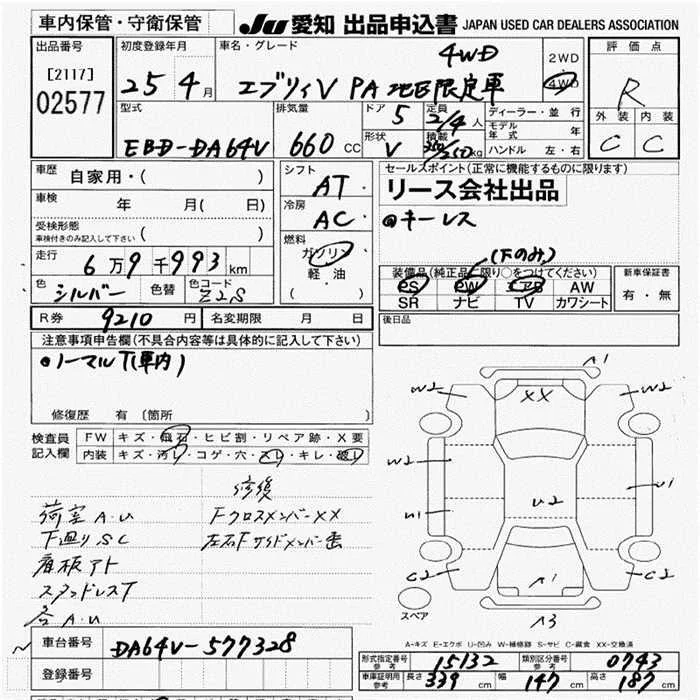 車内保管・守衛保管
JU 愛知 出品申込書 JAPAN USED CAR DEALERS ASSOCIATION
出品番号
[2117]
02577
初度登録年月
25 4 月
車名・グレード
4WD
エブリィV PA 地区限定車
2WD
4WD
評価点
R
外装 内装
C C
型式
EBD-DA64V
排気量
660 CC
ドア 5
定員 2/4 人
形状 V
積載 350/250 kg
ディーラー・並行
モデル年式 年
ハンドル 左・右
車歴
自家用・( )
車検
年 月( 日)
受検形態
車検付きのみ記入して下さい ( )
走行
6 万 9 千 993 km
色 シルバー 色替
色コード Z2S
シフト
AT
冷房
AC
燃料
ガソリン
軽・油
( )
セールスポイント(正常に機能するものに限ります)
リース会社出品
◎キーレス
(下のみ)
装備品(純正品に限り○をつけてください)
PS PW エアB AW
SR ナビ TV カワシート
新車保証書
有・無
後日品
R券 9210 円
名変期限 月 日
注意事項申告欄(不具合内容等は具体的に記入して下さい)
◎ノーマルT(車内)
修復歴 有〔箇所 〕
検査員記入欄
FW キズ・飛石・ヒビ割・リペア跡・X要
内装 キズ・汚レ・コゲ・穴・スレ・キレ・破レ
修復
荷室 A.U Fクロスメンバー XX
下廻り SC 左右Fサイドメンバー 歪
床板アト
スタッドレスT
各 A.U
A1
W2 XX W2
W2 U1
U2
U1
C2 A1 C2
A3
スペア
A-キズ E-エクボ U-凹み W-補修跡 S-サビ C-腐食 XX-交換済
車台番号 DA64V-577328
登録番号
形式指定番号 参考 15132
類別区分番号 参考 0743
車庫証明用 参考 長さ 339 cm 幅 147 cm 高さ 187 cm